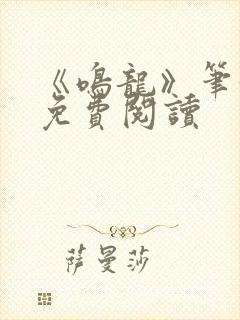 《鳴龍》筆
免費閱讀
萨曼莎